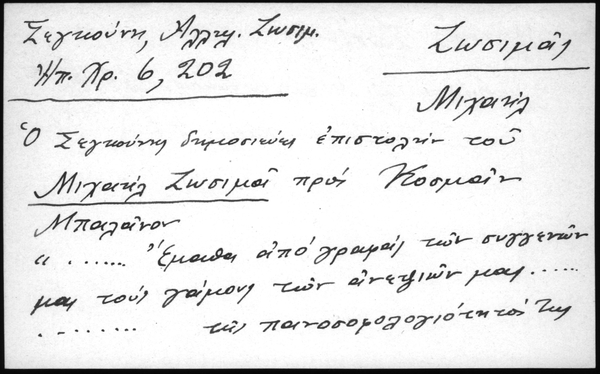 Σεγκούνη, Αλλελ. Ζωσιμ.
Ηπ. Χρ. 6, 202
Ζωσιμᾶς
Μιχαήλ
Ὁ Σεγκούνης δημοσιεύει ἐπιστολήν τοῦ
Μιχαήλ Ζωσιμᾶ πρός Κοσμᾶν
Μπαλᾶνον
"....... Ἔμαθα ἀπό γραφάς τῶν συγγενῶν
μας τούς γάμους τῶν ἀνεψιῶν μας......
......... τῆς πανοσοφολογιότητός της